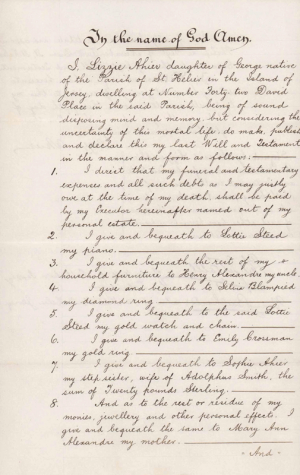 In the name of God Amen.
I, Lizzie Ahier daughter of George native
of the Parish of St. Helier in the Island of
Jersey, dwelling at Number Forty two David
Place in the said Parish, being of sound
disposing mind and memory, but considering the
uncertainty of this mortal life, do make, publish
and declare this my last Will and Testament
in the manner and form as follows:
1. I direct that my funeral and testamentary
expenses and all such debts as I may justly
owe at the time of my death, shall be paid
by my Executor hereinafter named out of my
personal estate.
2. I give and bequeath to Lottie Steed
my piano.
3. I give and bequeath the rest of my
household furniture to Henry Alexandre my uncle
4. I give and bequeath to Silvia Blampied
my diamond ring
5. I give and bequeath to the said Lottie
Steed my gold watch and chain.
6. I give and bequeath to Emily Crossman
my gold ring
7. I give and bequeath to Sophie Ahier
my step sister, wife of Adolphus Smith, the
sum of Twenty pounds Sterling.
8. And as to the rest or residue of my
monies, jewellery and other personal effects. I
give and bequeath the same to Mary Ann
Alexandre my mother.
And